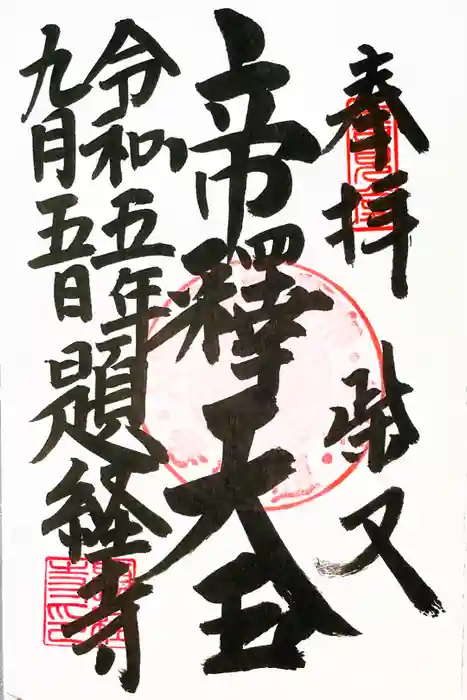 奉拝 柴又
帝釋天王
令和五年
九月五日
題経寺